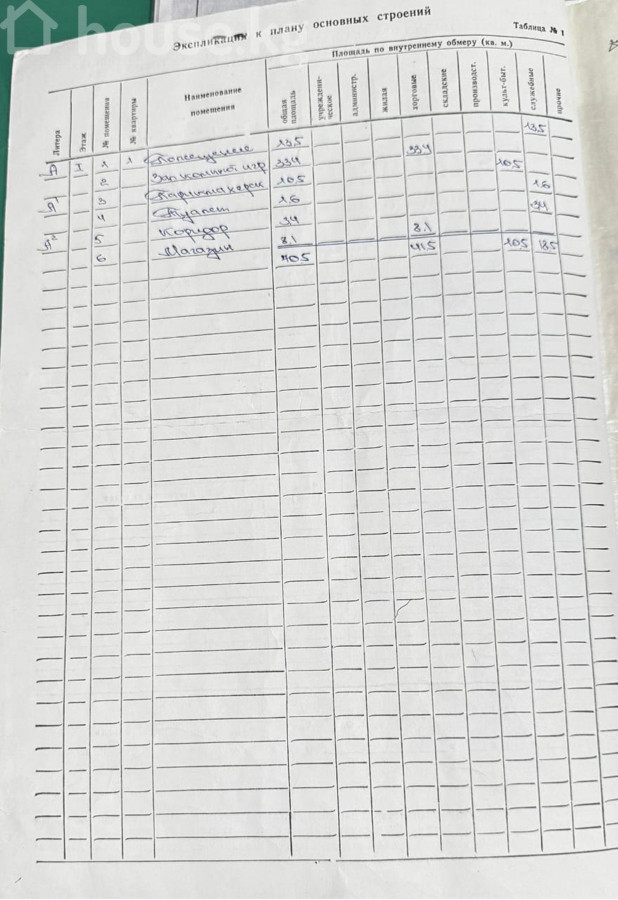 house.kg
Экспликация к плану основных строений
Таблица № 1
Литера
Этаж
№ помещения
№ квартиры
Наименование помещения
Площадь по внутреннему обмеру (кв. м.)
общая площадь
учреждени-ческое
администр.
жилая
торговые
складские
производст.
культ-быт.
служебные
прочие
А I 1 1 Помещение 13,5 13,5
2 Зал комп. игр 33,4 33,4
А¹ 3 Парикмахерск 10,5 10,5
4 Туалет 1,6 1,6
А² 5 Коридор 3,4 3,4
6 Магазин 8,1 8,1
70,5 41,5 10,5 18,5